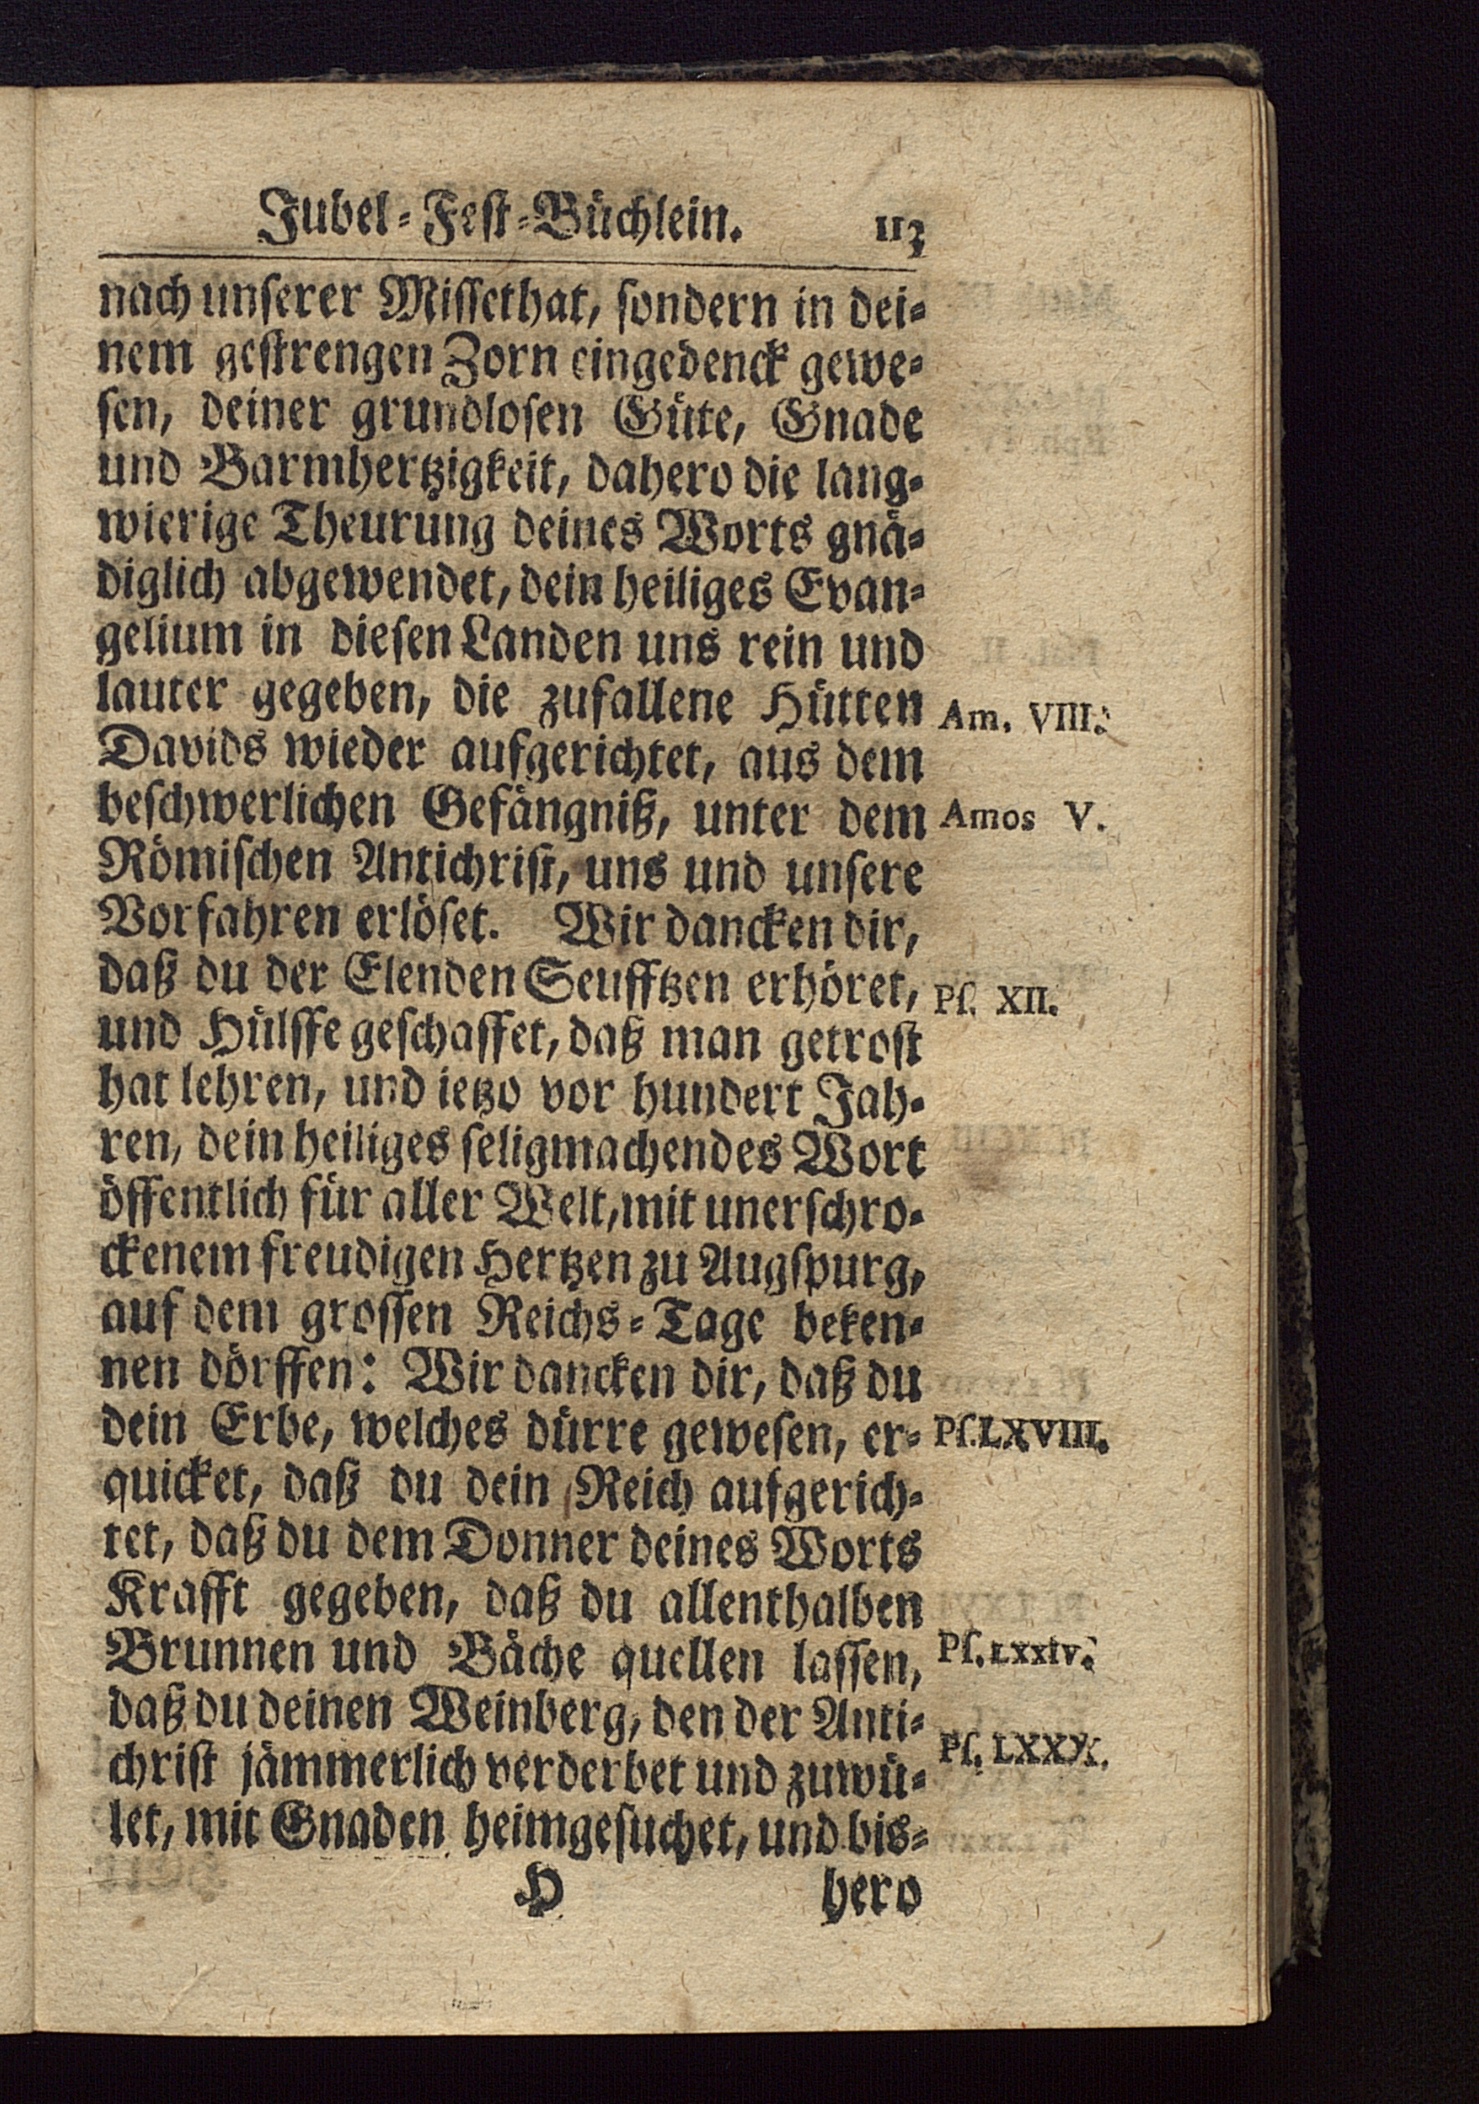 Jubel-Fest-Büchlein. 113
nach unserer Missethat, sondern in dei-
nem gestrengen Zorn eingedenck gewe-
sen, deiner grundlosen Güte, Gnade
und Barmhertzigkeit, dahero die lang-
wierige Theurung deines Worts gnä-
diglich abgewendet, dein heiliges Evan-
gelium in diesen Landen uns rein und
lauter gegeben, die zufallene Hütten
Am. VIII.
Davids wieder aufgerichtet, aus dem
beschwerlichen Gefängniß, unter dem
Amos V.
Römischen Antichrist, uns und unsere
Vorfahren erlöset. Wir dancken dir,
daß du der Elenden Seufftzen erhöret,
Ps. XII.
und Hülffe geschaffet, daß man getrost
hat lehren, und ietzo vor hundert Jah-
ren, dein heiliges seligmachendes Wort
öffentlich für aller Welt, mit unerschro-
ckenem freudigen Hertzen zu Augspurg,
auf dem grossen Reichs-Tage beken-
nen dörffen: Wir dancken dir, daß du
dein Erbe, welches dürre gewesen, er-
Ps. LXVIII.
quicket, daß du dein Reich aufgerich-
tet, daß du dem Donner deines Worts
Krafft gegeben, daß du allenthalben
Brunnen und Bäche quellen lassen,
Ps. LXXIV.
daß du deinen Weinberg, den der Anti-
christ jämmerlich verderbet und zuwü-
Ps. LXXX.
let, mit Gnaden heimgesuchet, und bis-
H hero